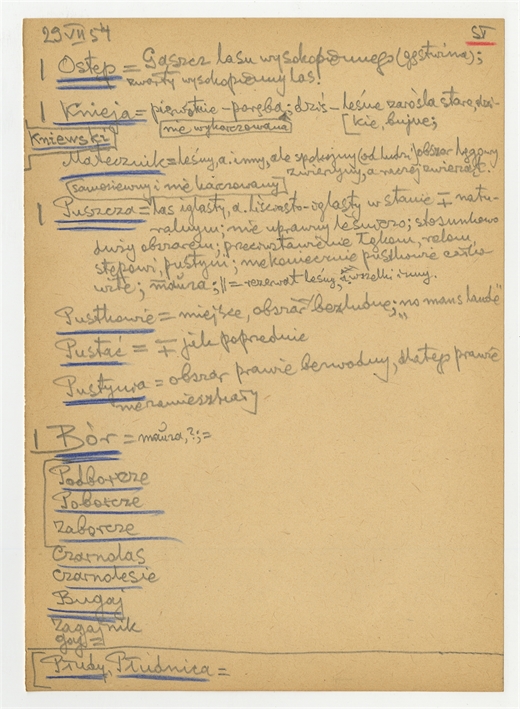 29 VII 54 ST
| Ostęp = Gąszcz lasu wysokopiennego (gęstwina);
zwarty wysokopienny las!
| Knieja = pierwotnie - poręba; dziś - leśne zarośla stare, dzi-
nie wykarczowana [kie, bujne;
Kniewski
Matecznik = leśny, a. inny, ale spokojny (od ludzi) obszar lęgowy
zwierzyny, a raczej zwierząt.
samosiewny i nie karczowany
| Puszcza = las iglasty, a. liściasto-iglasty w stanie ∓ natu-
ralnym; nie uprawny leśniczo; stosunkowo
duży obszarem; przeciwstawienie łąkom, rolom,
stepowi, pustyni; niekoniecznie pustkowie całko-
wite; = rezerwat leśny, a wszelki inny.
Pustkowie = miejsce, obszar bezludne; „no mans lande"
Pustać = ∓ jak poprzednie
Pustynia = obszar prawie bezwodny, dlatego prawie
niezamieszkały]
| Bór = ?; =
Podborze
Poborcze
Zaborze
Czarnolas
Czarnolesie
Bugaj
Zagajnik
gaj =
[Prudy, Prudnica =